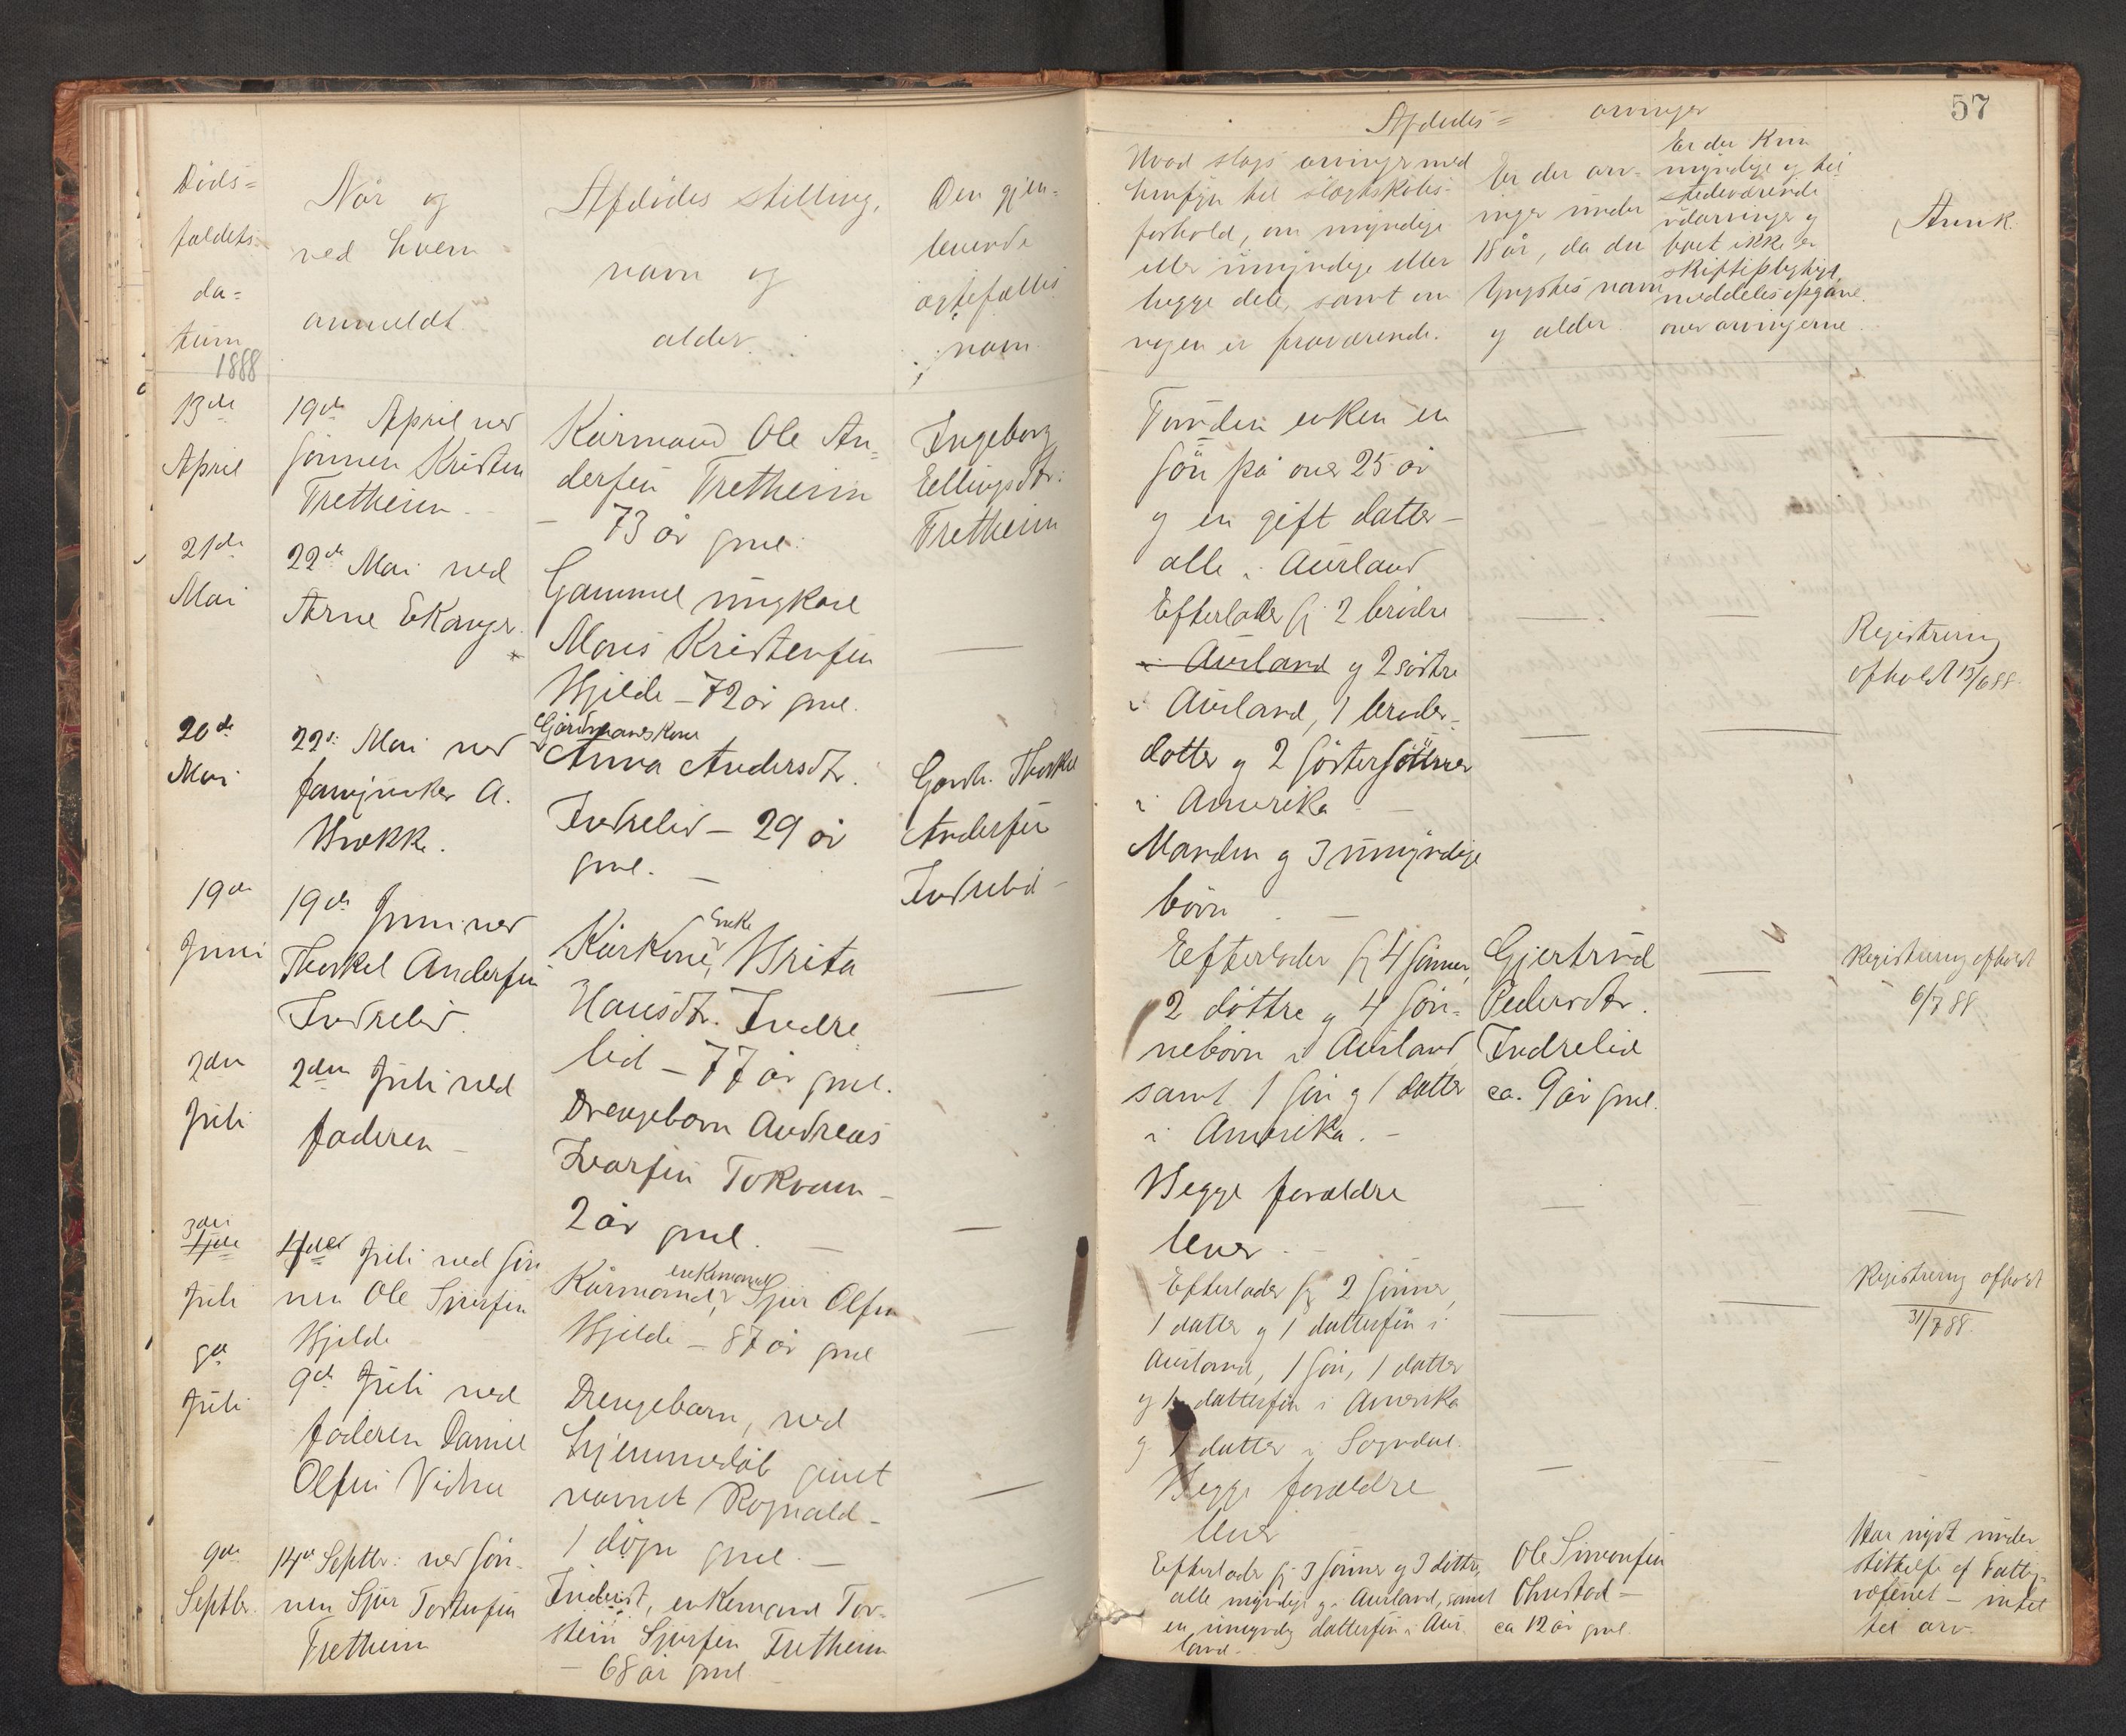 57
Afdødes arvinger
Døds=
faldets
da=
tum
1888
Når og
ved hvem
anmeldt
Afdødes stilling,
navn og
alder.
Den gjen-
levende
ægtefælles
navn
Hvad slags arvinger med
hensyn til slægtskabs-
forhold, om myndige
eller umyndige eller
begge dele, samt om
nogen er fraværende.
Er der arv-
inger under
18 år, da den
yngstes navn
og alder
Er der kun
myndige og til
stedeværende
udarvinger og
boet ikke er
skiftepligtigt,
meddeles opgave
over arvingerne.
Anmk.
13de
April
19de April ved
sønnen Kristen
Fretheim
Kårmand Ole An=
dersen Fretheim
— 73 år gml.
Ingeborg
Ellingsdtr.
Fretheim
Foruden enken en
søn på over 25 år
og en gift datter —
alle i Aurland
21de
Mai
22de Mai ved
Arne Ekanger.
Gammel ungkarl
Mons Kristensen
Hjilde — 72 år gml.
Efterlader sig 2 brødre
i Aurland og 2 søstre
i Aurland, 1 broder-
datter og 2 søstersønner
i Amerika —
Registrering
afholdt 13/6 88.
20de
Mai
22de Mai ved
A.
Brække.
Gårdmandskone
Anna Andersdtr.
Indrelid — 29 år
gml. —
Gårdb. Thorkel
Andersen
Indrelid —
Manden og 3 umyndige
børn. —
19de
Juni
19de Juni ved
Thorkel Andersen
Indrelid.
Kårkone, Enke Brita
Hansdtr. Indre
lid — 77 år gml.
Efterlader sig 4 sønner,
2 døttre og 4 søn-
nebørn i Aurland
samt 1 søn og 1 datter
i Amerika. —
Gjertrud
Pedersdtr.
Indrelid
ca. 9 år gml.
Registrering afholdt
6/7 88
2den
Juli
2den Juli ved
faderen —
Drengebarn Andreas
Ivarsen Tokvam —
2 år gml. —
Begge forældre
lever —
3die
4de
Juli
4de Juli ved søn
nen Ole Sjursen
Hjilde
Kårmand, enkemand Sjur Olsen
Hjilde — 87 år gml
Efterlader sig 2 sønner,
1 datter og 1 dattersøn i
Aurland, 1 søn, 1 datter
og 1 dattersøn i Amerika
og 1 datter i Sogndal.
Registrering afholdt
31/7 88.
9de
Juli
9de Juli ved
faderen Daniel
Olsen Vidme
Drengebarn, ved
hjemmedåb givet
navnet Rognald —
1 døgn gml. —
Begge forældre
lever
9de
Septbr.
14de Septbr. ved søn-
nen Sjur Torstensen
Fretheim
Inderst, enkemand Tor-
stein Sjursen Fretheim
— 68 år gml
Efterlader sig 3 sønner og 3 døttre,
alle myndige og i Aurland, samt
en umyndig dattersøn i Aur
land. —
Ole Simonsen
Ohnstad —
ca 12 år gml.
Har nydt under
støttelse af Fattig-
væsenet — intet
til arv.